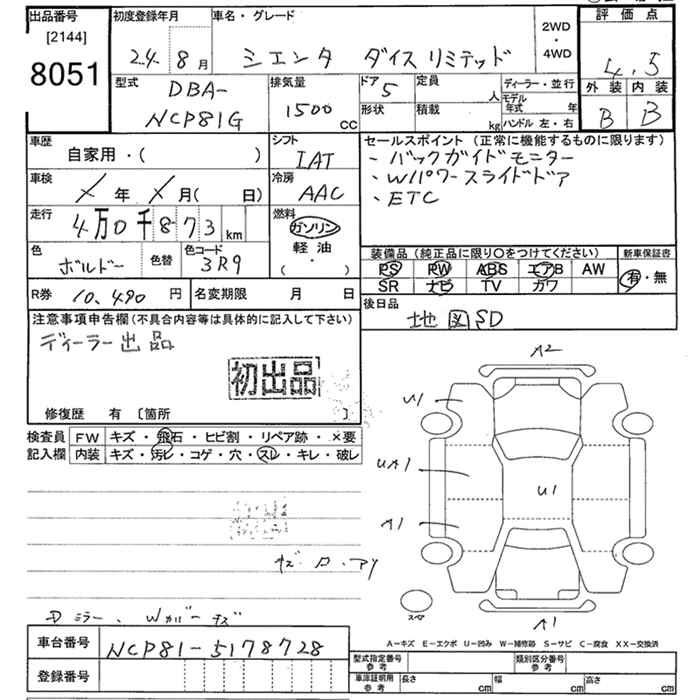 出品番号 [2144] 8051
初度登録年月 24. 8月
車名・グレード シエンタ ダイスリミテッド
2WD・4WD
評価点 4.5
外装 B 内装 B
型式 DBA-NCP81G
排気量 1500 cc
ドア 5 形状
定員 人 積載 kg
ディーラー・並行
モデル年式 年
ハンドル 左・右
車歴 自家用・( )
シフト IAT
セールスポイント (正常に機能するものに限ります)
・バックガイドモニター
・Wパワースライドドア
・ETC
車検 年 月( 日)
冷房 AAC
走行 4万0千873km
燃料 ガソリン 軽油 ( ・ )
色 ボルドー 色替
色コード 3R9
装備品 (純正品に限り○をつけてください) 新車保証書
PS PW ABS エアB AW 有・無
SR ナビ TV カワ
R券 10,490円 名変期限 月 日
後日品 地図SD
注意事項申告欄(不具合内容等は具体的に記入して下さい)
ディーラー出品
初出品
修復歴 有 〔箇所 〕
検査員記入欄
FW キズ・飛石・ヒビ割・リペア跡・×要
内装 キズ・汚レ・コゲ・穴・スレ・キレ・破レ
A2
U1
UA1
U1
A1
A1
スペア
A-キズ E-エクボ U-凹み W-補修跡 S-サビ C-腐食 XX-交換済
車台番号 NCP81-5178728
登録番号
型式指定番号 参考
類別区分番号 参考
車庫証明用 参考 長さ cm 幅 cm 高さ cm